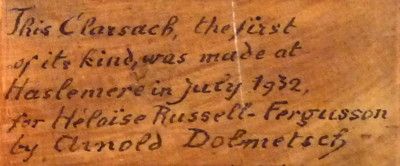 This Clarsach, the first
of its kind, was made at
Haslemere in july 1932,
for Héloïse Russell-Fergusson
by Arnold Dolmetsch